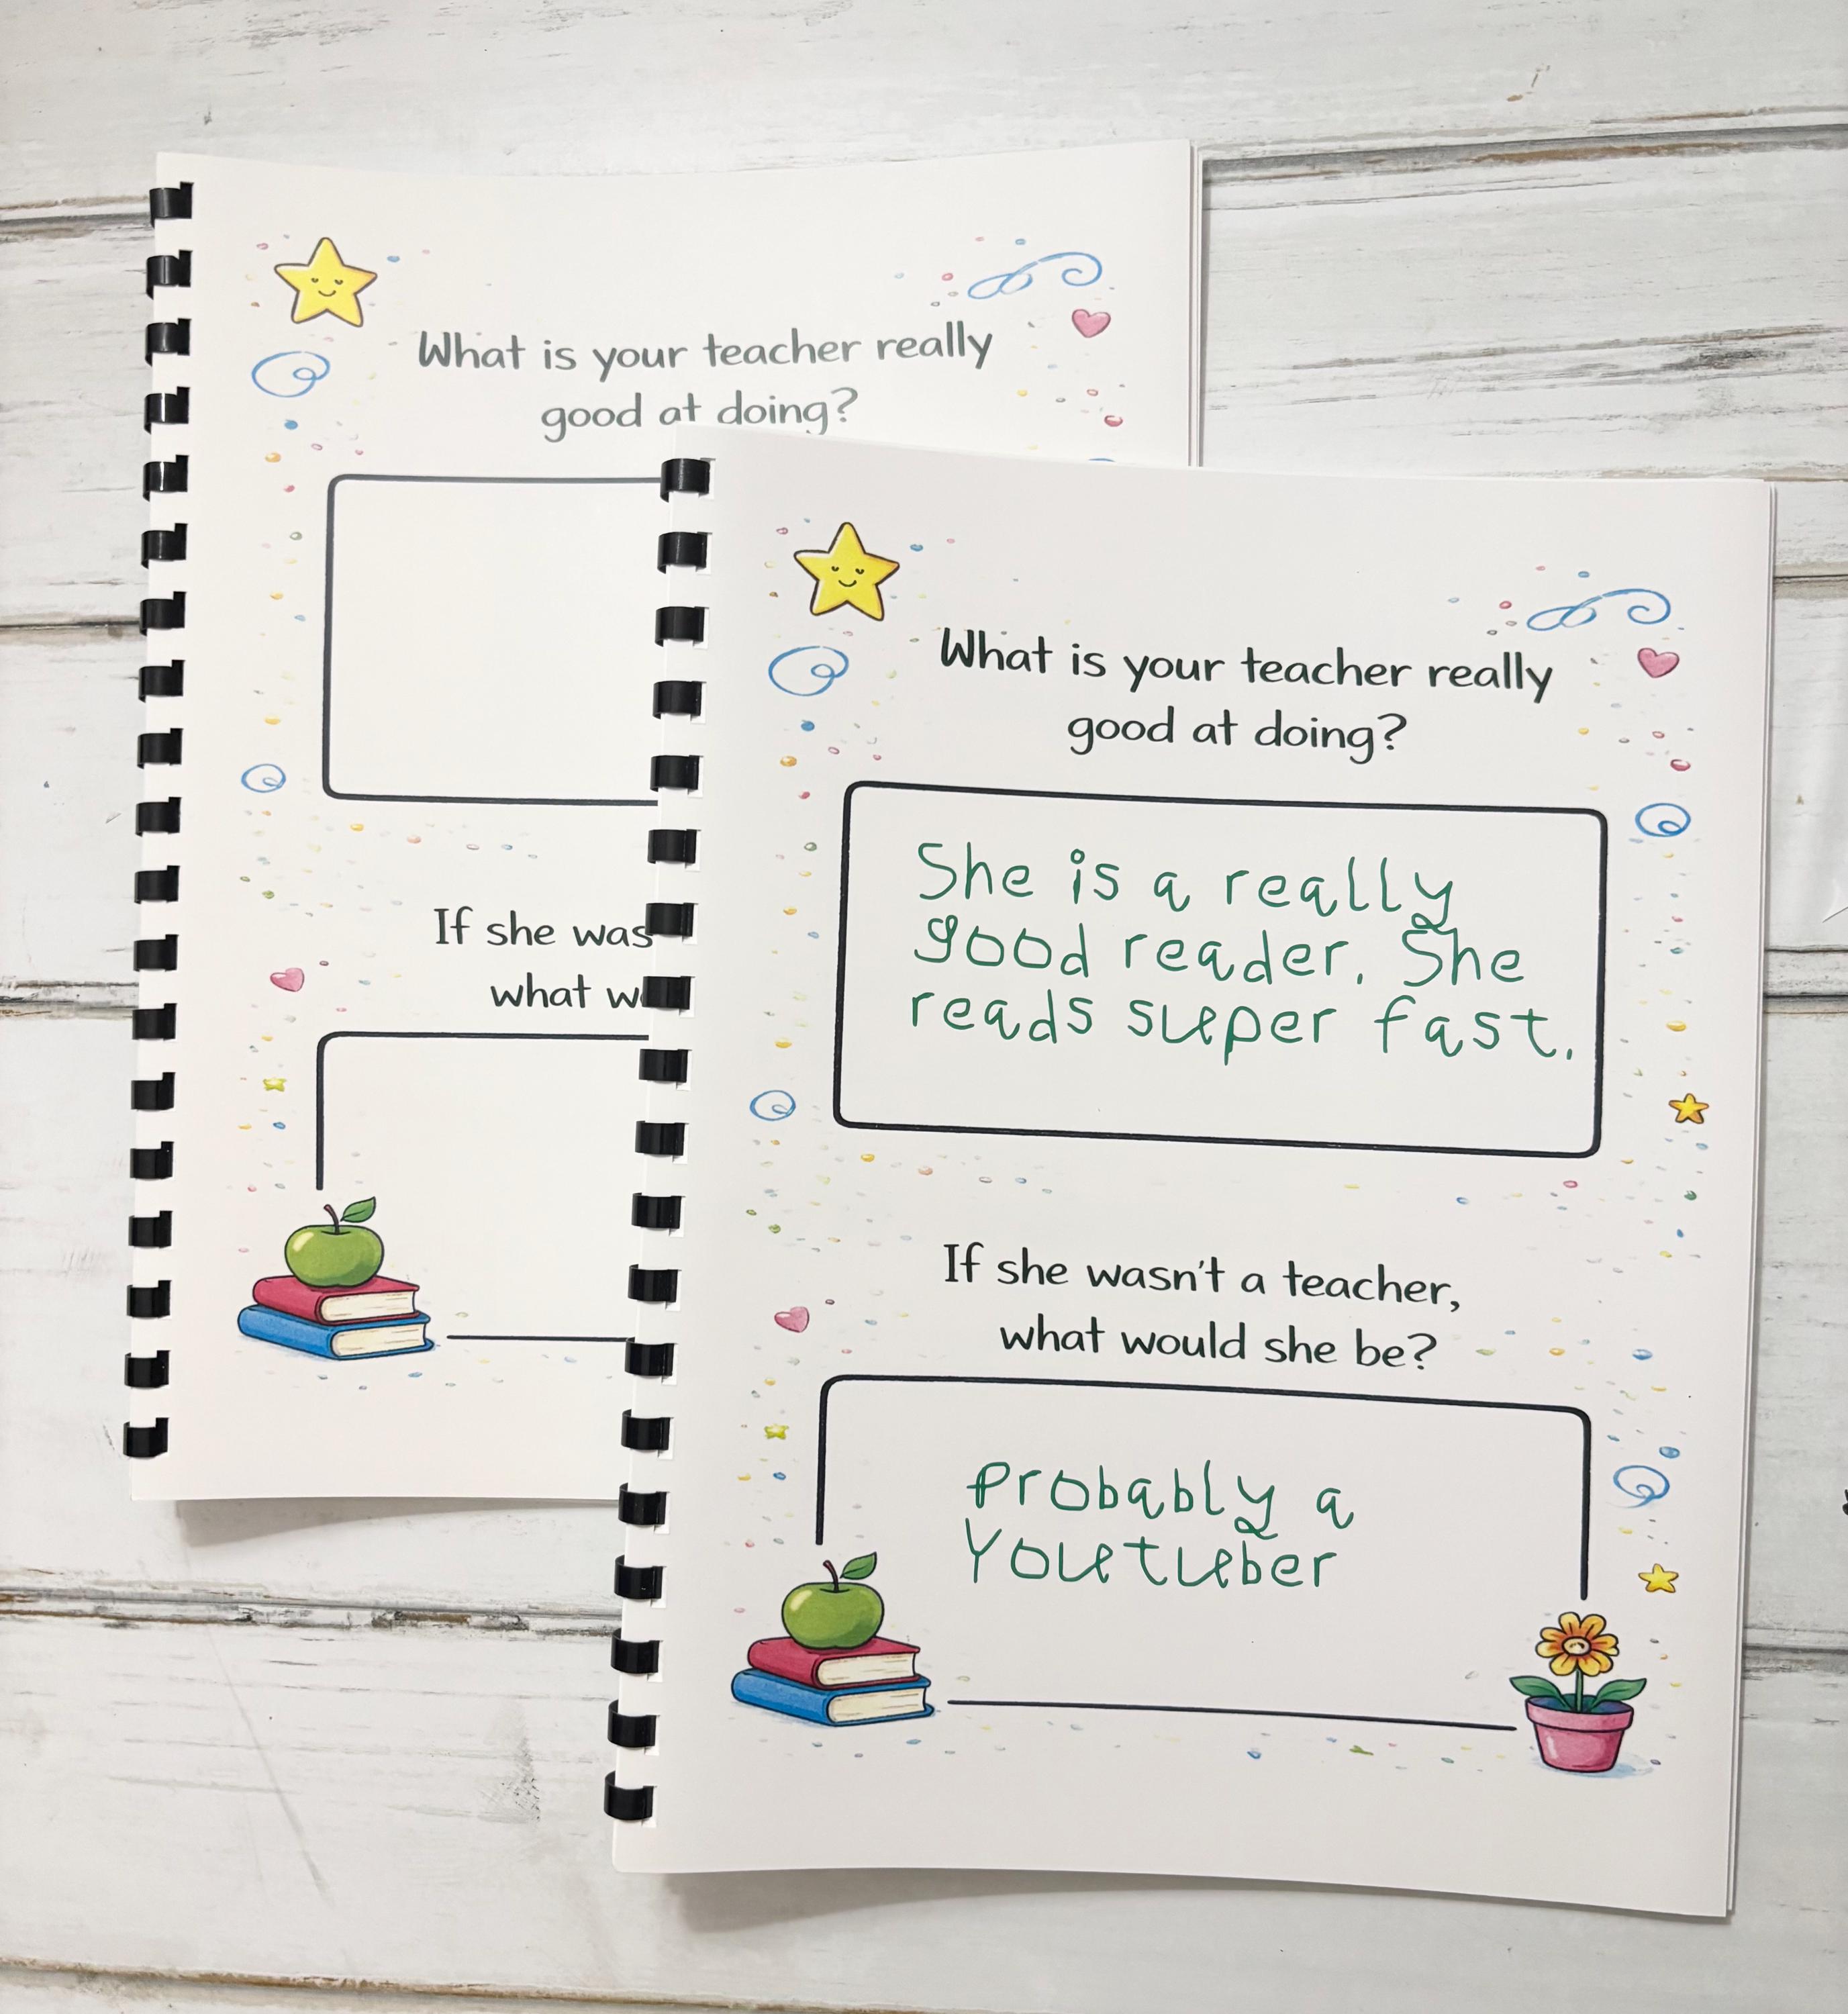 What is your teacher really
good at doing?
If she was
what
What is your teacher really
good at doing?
She is a really
good reader. She
reads super fast.
If she wasn't a teacher,
what would she be?
Probably a
Youtuber